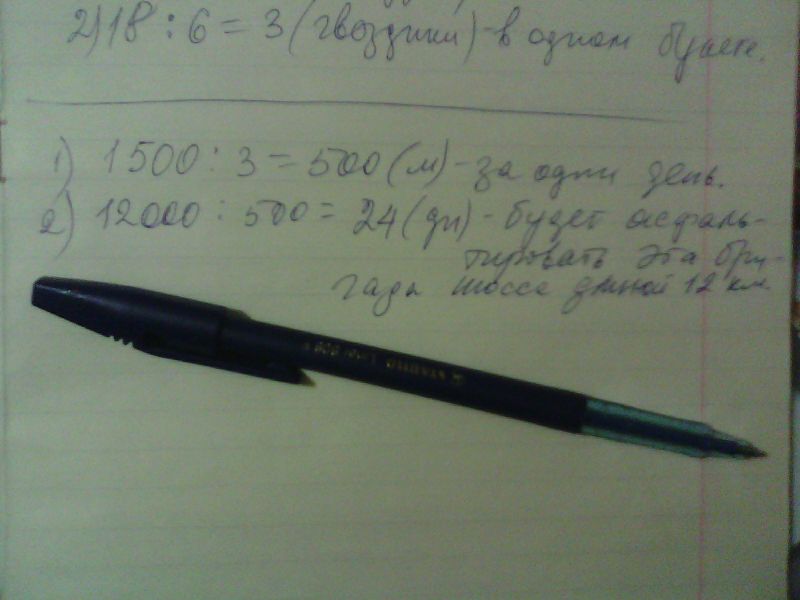 2) 18 : 6 = 3 (гвоздики) - в одном букете.
1) 1500 : 3 = 500 (м) - за один день.
2) 12000 : 500 = 24 (дн) - будет асфаль-
тировать эта бри-
гада шоссе длиной 12 км.